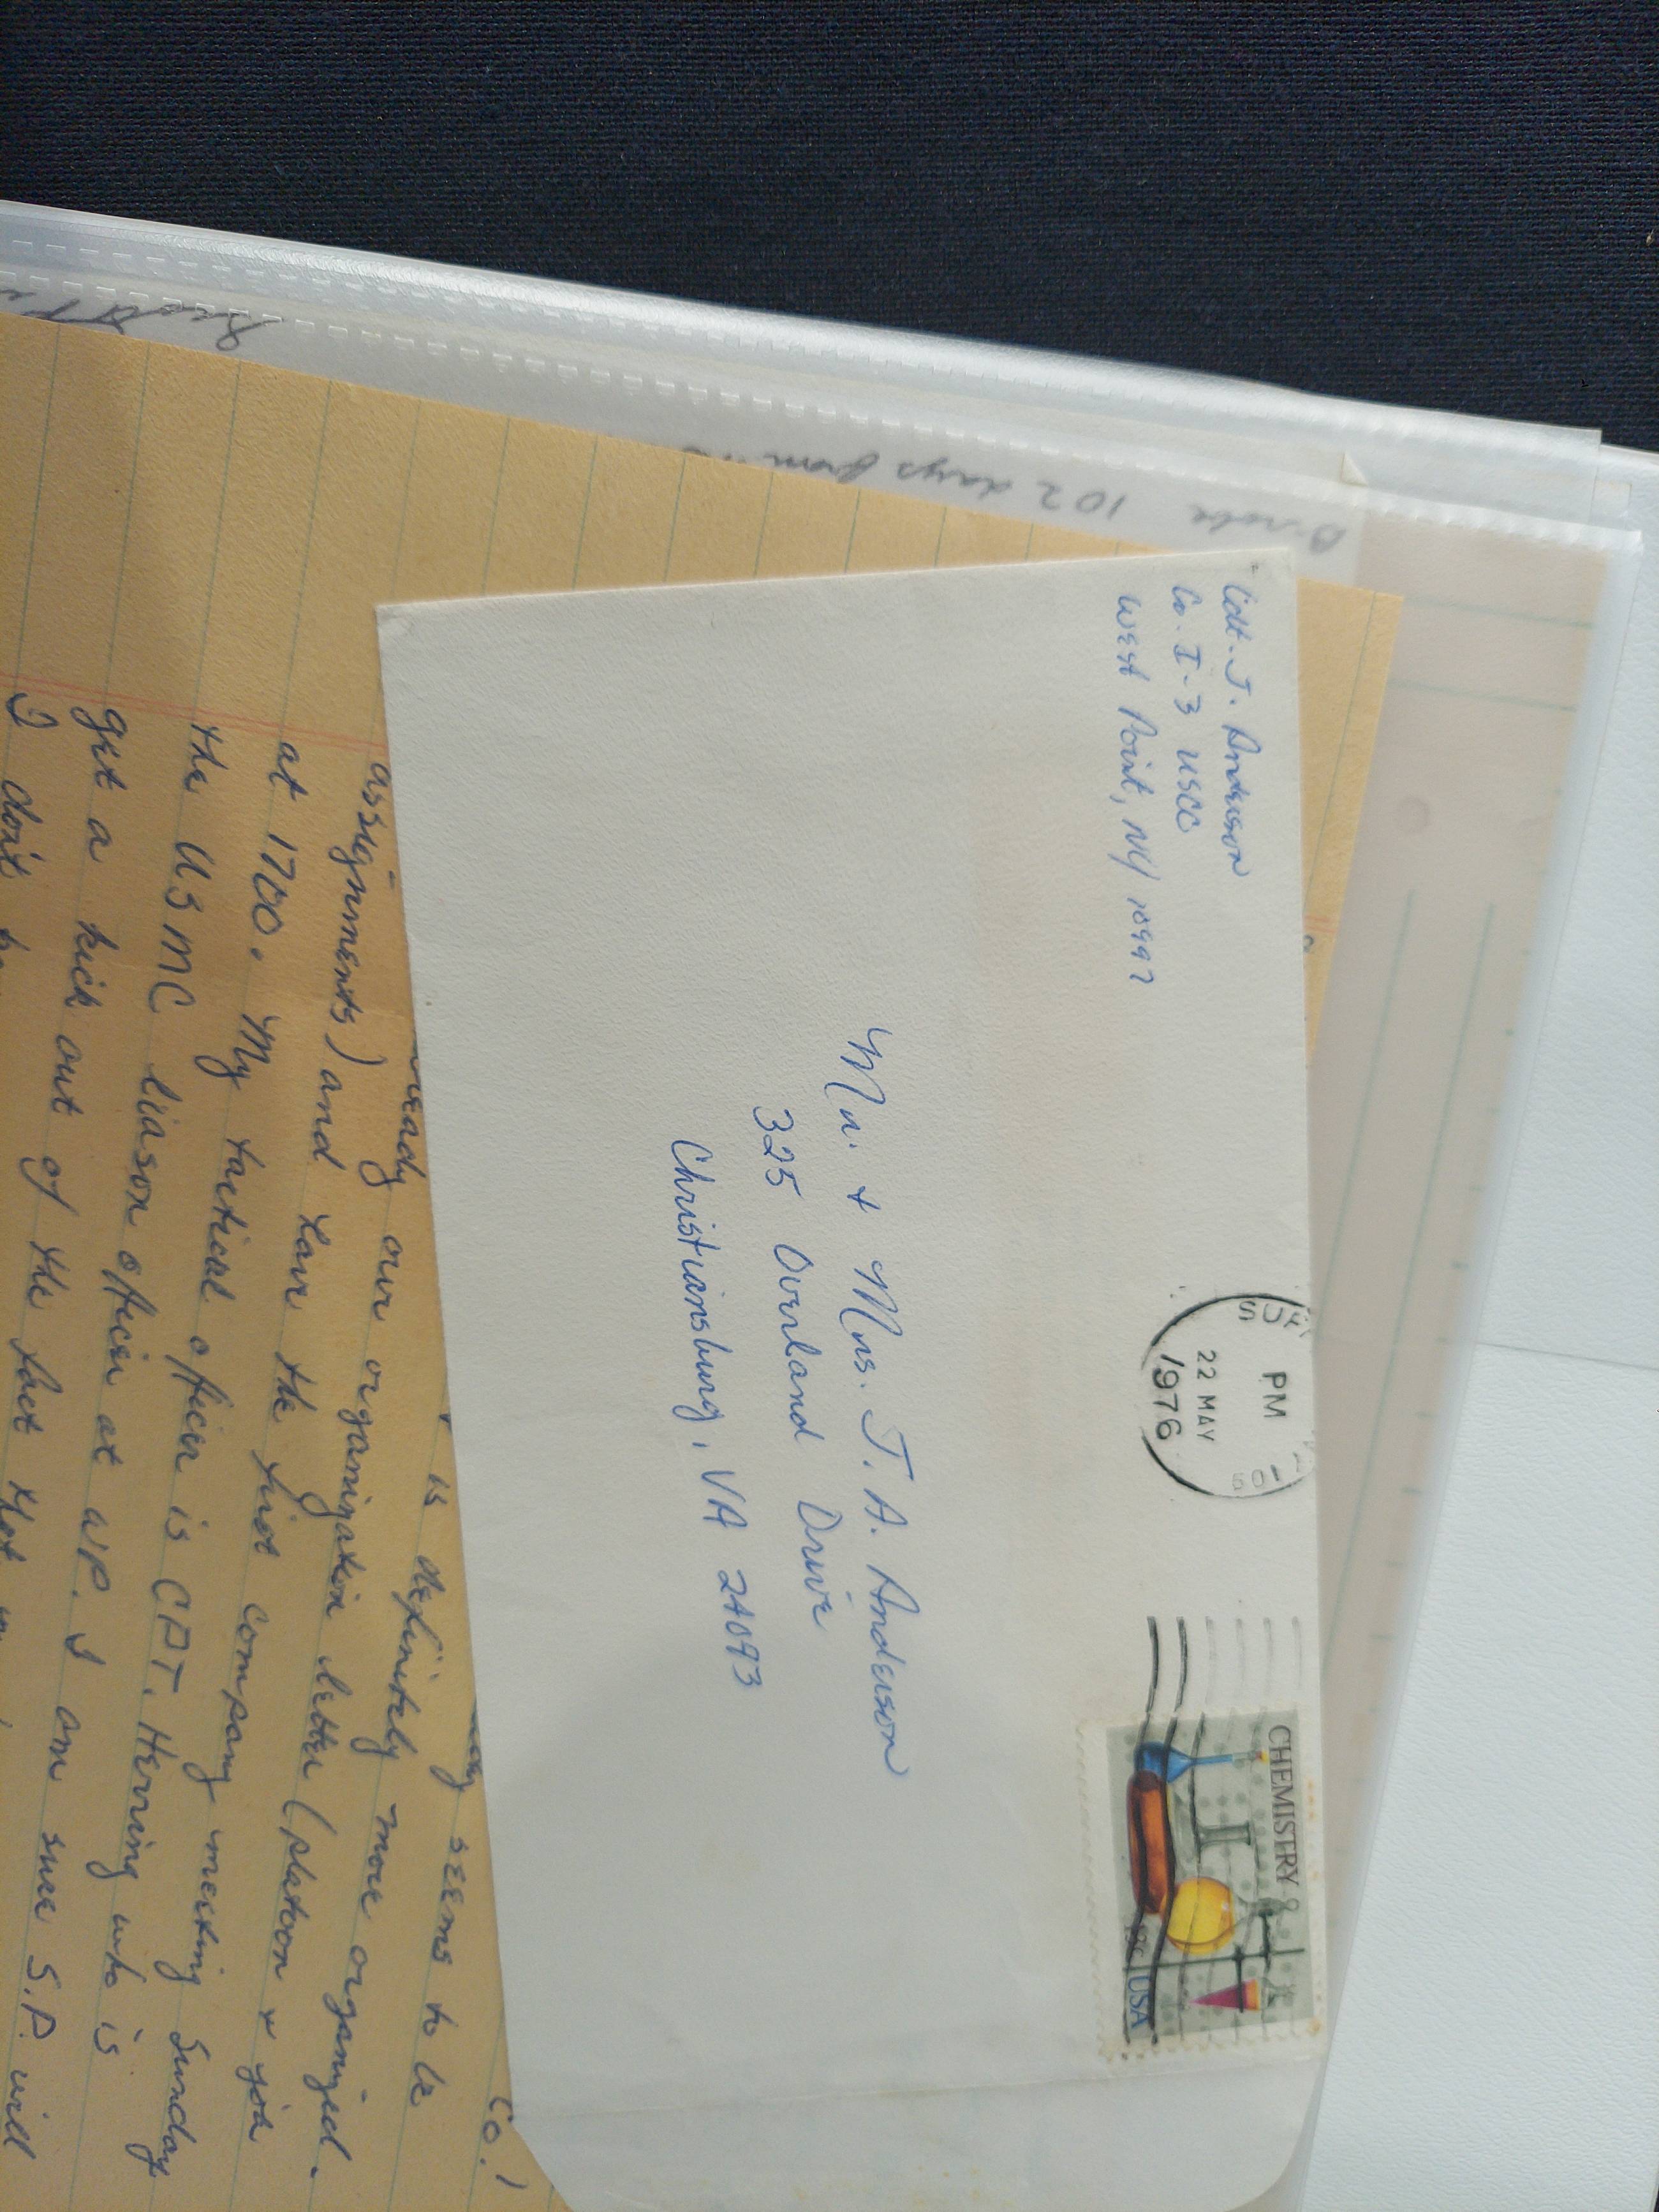 Cdt. J. Anderson
Co. I-3 USCC
West Point, NY 10997
SUF
PM
22 MAY
1976
501
CHEMISTRY
13c USA
Mr. & Mrs. J. A. Anderson
325 Overland Drive
Christiansburg, VA 24093
Co. I
seems to be
is definitely more organized.
our organization letter (platoon & job
assignments) and have the first company meeting Sunday
at 1700. My tactical officer is CPT. Herring who is
the USMC liason officer at WP. I am sure S.P. will
get a kick out of the fact that
I don't
102 days from